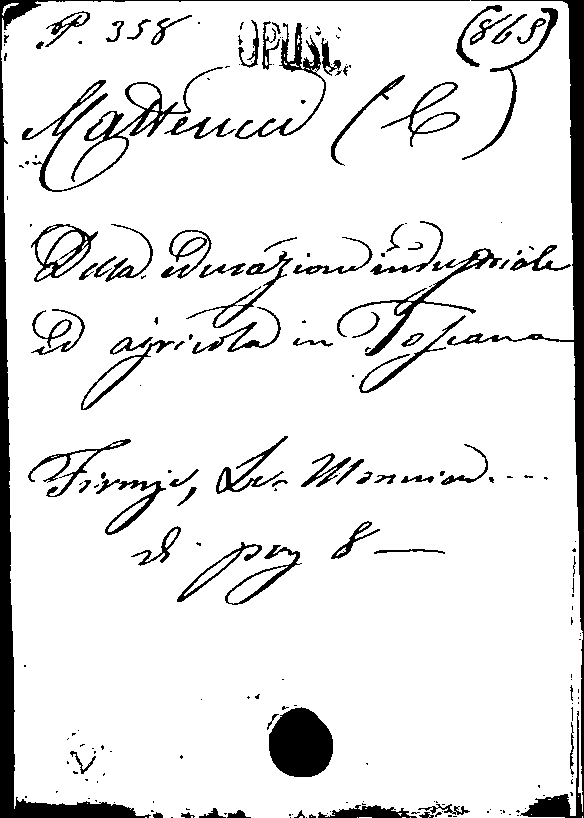 P. 358 OPUSC. (865)
Matteucci (C)
Della educazione industriale
ed agricola in Toscana
Firenze, Le Monnier....
di pag 8 —
V